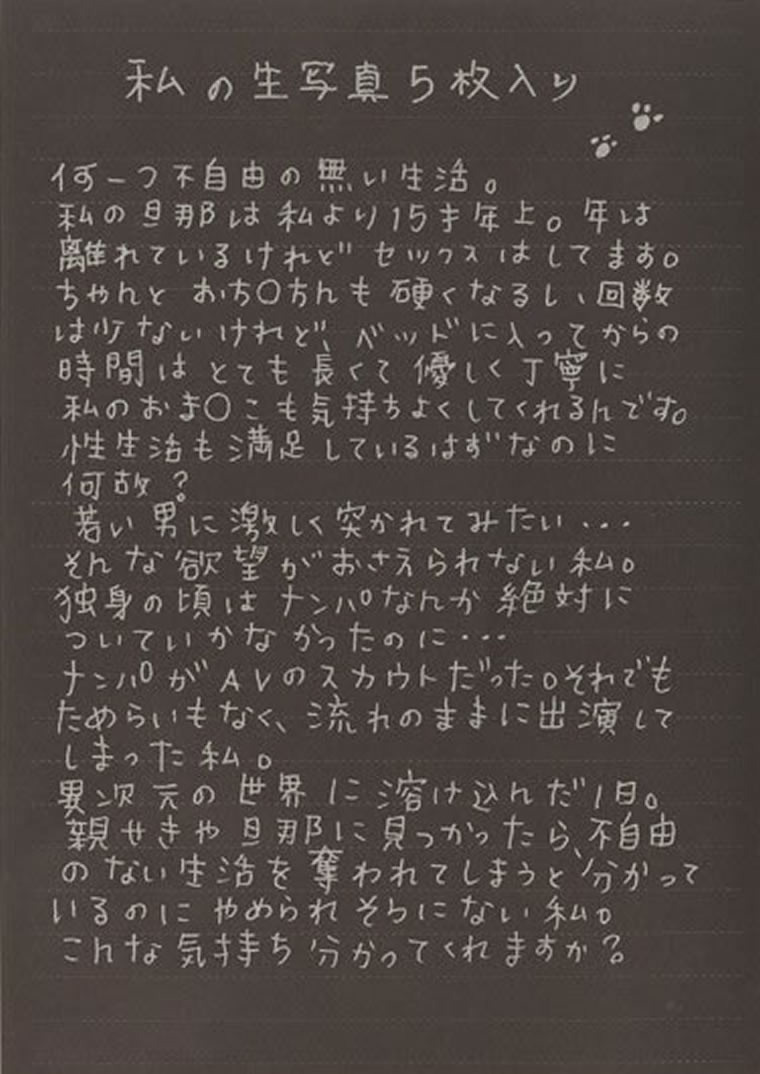 私の生写真5枚入り
何一つ不自由の無い生活。
私の旦那は私より15才年上。年は
離れているけれどセックスはしてます。
ちゃんとおち〇ちんも硬くなるし、回数
は少ないけれど、ベッドに入ってからの
時間はとても長くて優しく丁寧に
私のおま〇こも気持ちよくしてくれるんです。
性生活も満足しているはずなのに
何故?
若い男に激しく突かれてみたい・・・
そんな欲望がおさえられない私。
独身の頃はナンパなんか絶対に
ついていかなかったのに・・・
ナンパがAVのスカウトだった。それでも
ためらいもなく、流れのままに出演して
しまった私。
異次元の世界に溶け込んだ1日。
親せきや旦那に見つかったら、不自由
のない生活を奪われてしまうと分かって
いるのにやめられそうにない私。
こんな気持ち分かってくれますか?